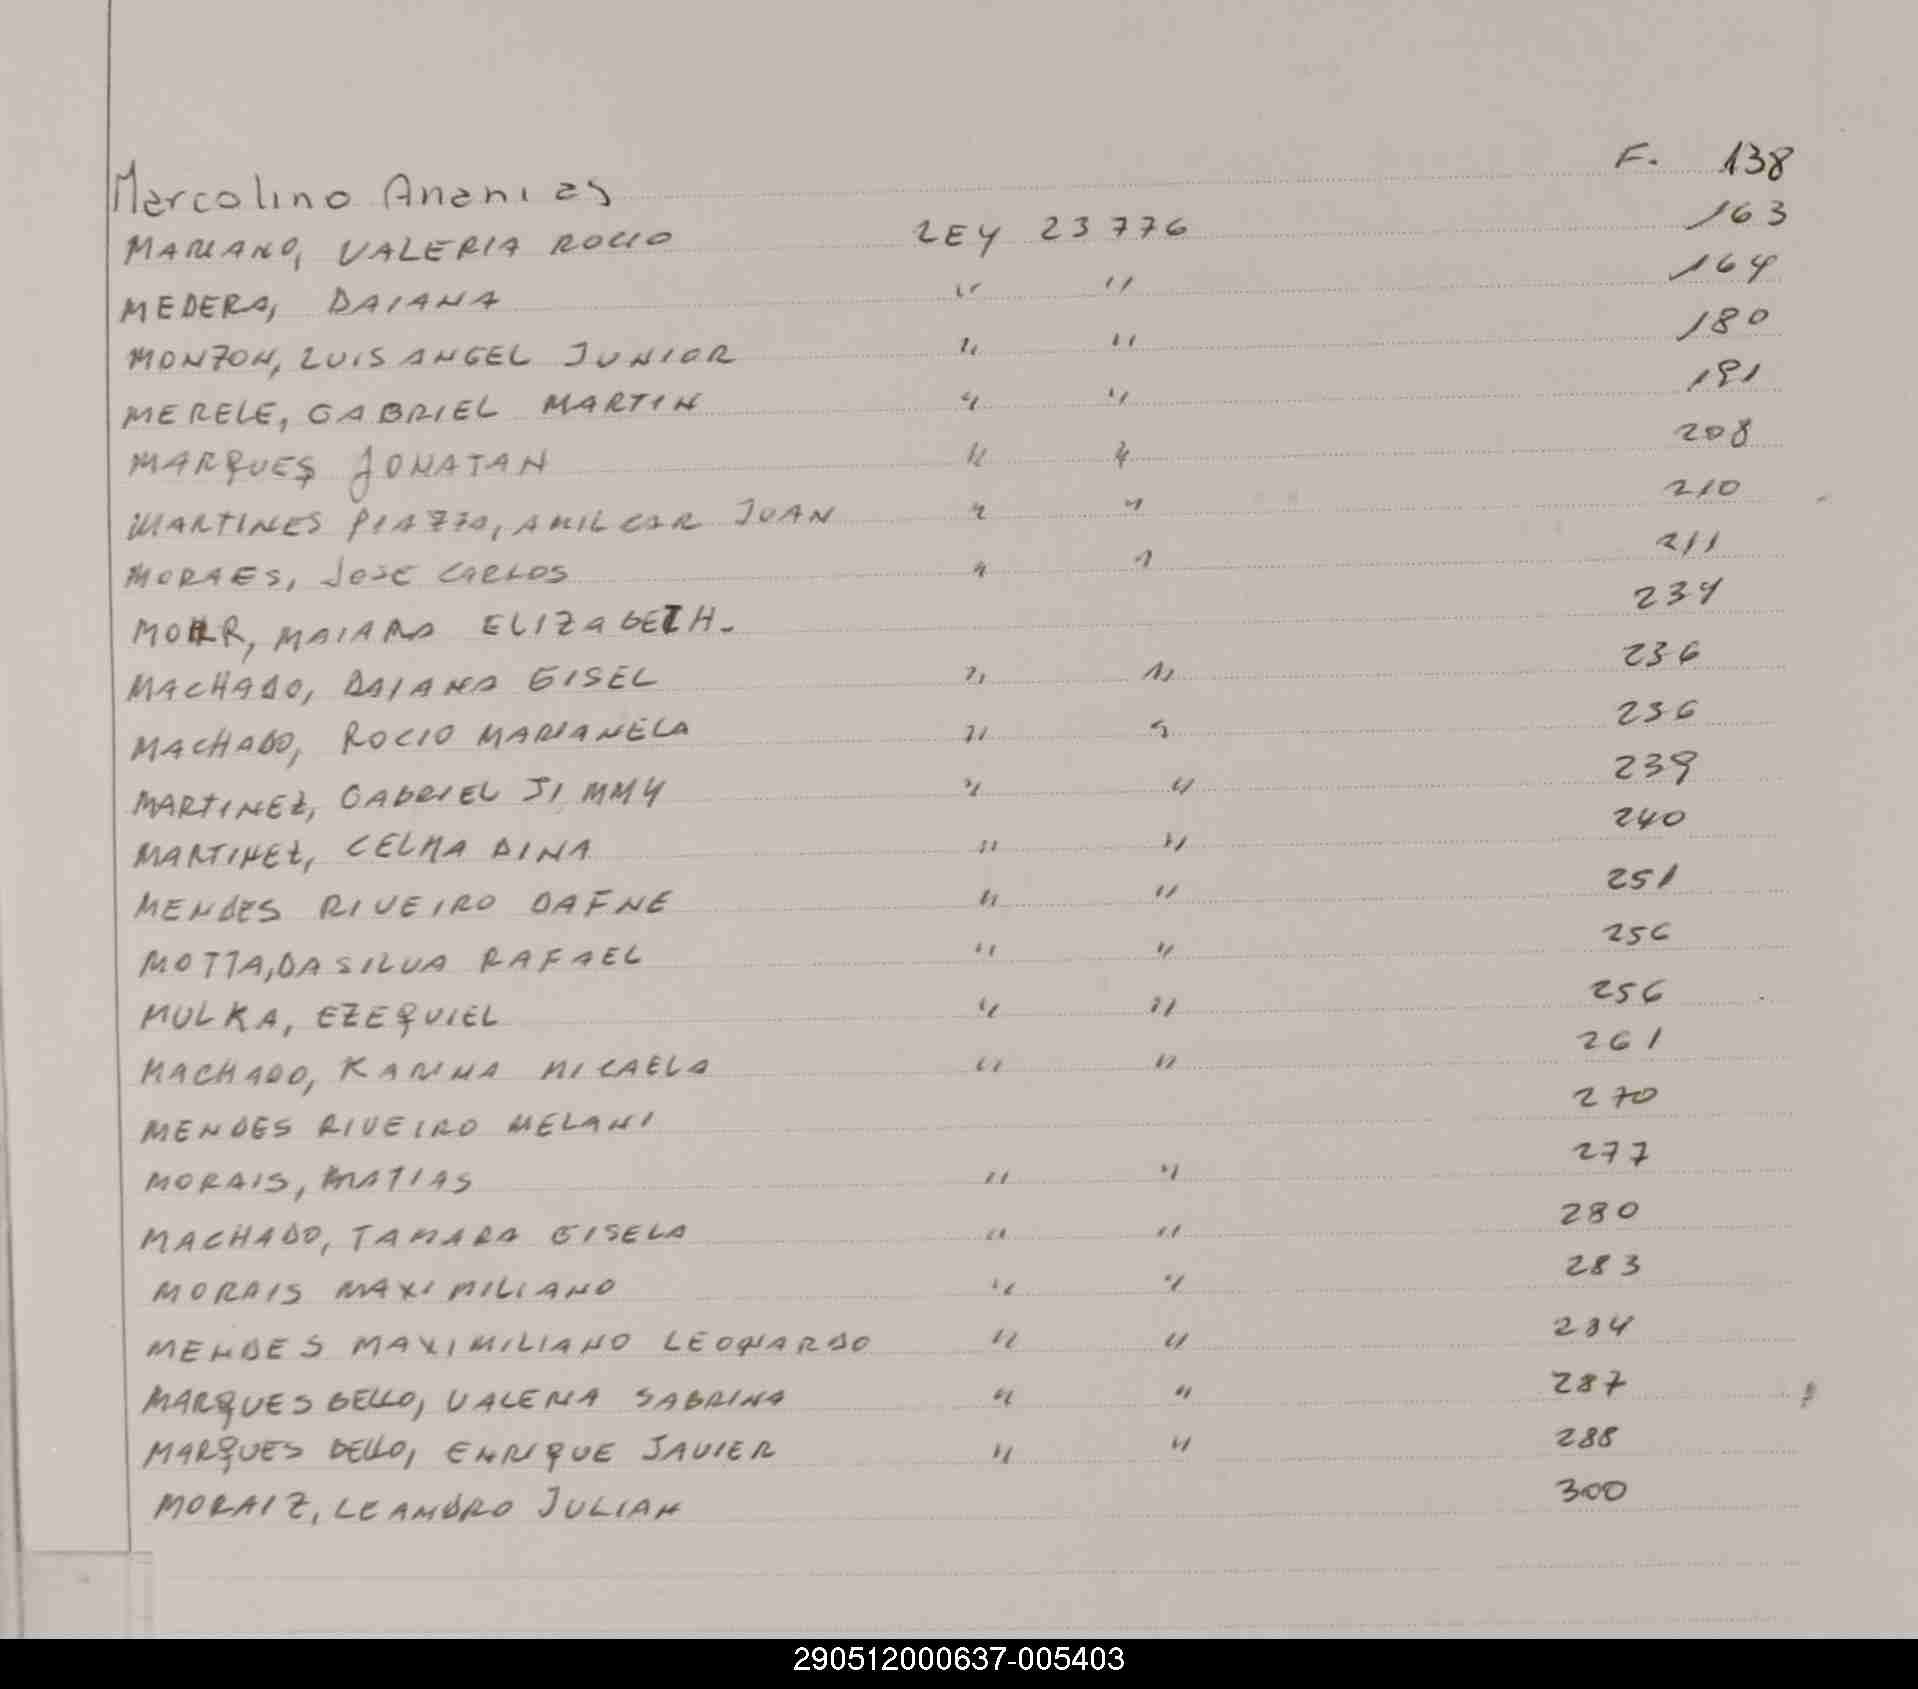 Marcolino Ananias F. 138
MARIANO, VALERIA ROCIO LEY 23776 163
MEDERA, DAIANA " " 164
MONZON, LUIS ANGEL JUNIOR " " 180
MERELE, GABRIEL MARTIN " " 191
MARQUES JONATAN " " 208
MARTINES PIAZZO, AMILCAR JUAN " " 210
MORAES, JOSE CARLOS " " 211
MOHR, MAIARA ELIZABETH. 234
MACHADO, DAIANA GISEL " " 236
MACHADO, ROCIO MARIANELA " " 236
MARTINEZ, GABRIEL JIMMY " " 239
MARTINEZ, CELMA DINA " " 240
MENDES RIVEIRO DAFNE " " 251
MOTTA, DA SILVA RAFAEL " " 256
MULKA, EZEQUIEL " " 256
MACHADO, KARINA MICAELA " " 261
MENDES RIVEIRO MELANI 270
MORAIS, MATIAS " " 277
MACHADO, TAMARA GISELA " " 280
MORAIS MAXIMILIANO " " 283
MENDES MAXIMILIANO LEONARDO " " 284
MARQUES BELLO, VALERIA SABRINA " " 287
MARQUES BELLO, ENRIQUE JAVIER " " 288
MORAIZ, LEANDRO JULIAN 300
290512000637-005403